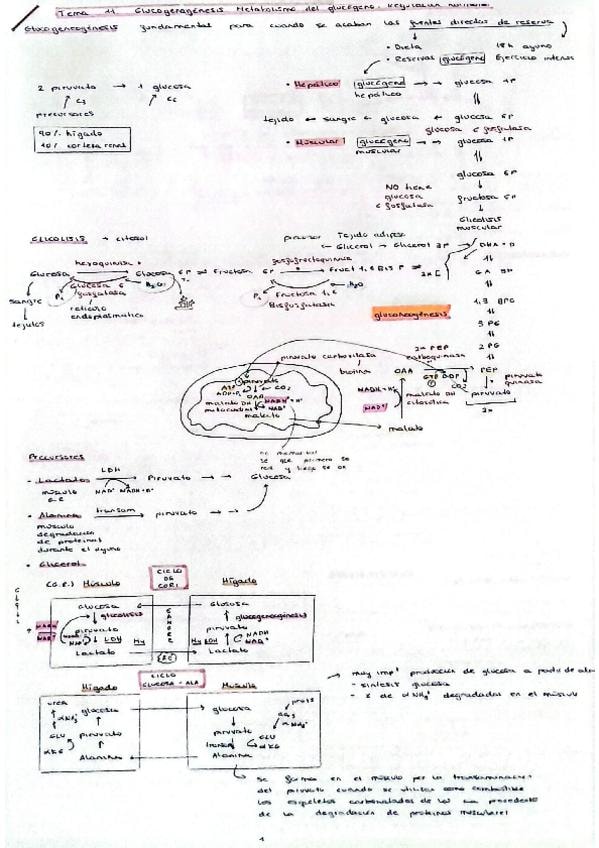 Tema 11. Glucogenogénesis Metabolismo del glucógeno. Regulación
Glucogeneogénesis fundamentales para cuando se acaban las fuentes directas de reserva
• Dieta 18h ayuno
• Reservas glucógeno Ejercicio intenso
2 piruvato → 1 glucosa
C3 C6
precursores
90% hígado
10% corteza renal
• Hepático glucógeno → → glucosa 1P
hepático
tejido ← sangre ← glucosa ← glucosa 6P
glucosa 6 fosfatasa
• Muscular: glucógeno → → glucosa 1P
muscular
glucosa 6P
NO tiene
glucosa
6 fosfatasa
fructosa 6P
Glicolisis
muscular
GLICOLISIS → citosol
Tejido adiposo
← Glicerol ← Glicerol 3P
hexoquinasa
Glucosa Glucosa 6P ⇌ Fructosa 6P
fosfofructoquinasa
Fruct 1,6 Bis P
Pi Glucosa 6 fosfatasa H2O
Pi Fructosa 1,6 Bisfosfatasa H2O
retículo
endoplasmático
sangre
↓
tejidos
gluconeogénesis
1,3 BPG
3 PG
2 PG
PEP
2x PEP
carboquinasa
OAA GTP GDP
CO2
piruvato
quinasa
piruvato
2x
piruvato carboxilasa
biotina
piruvato
ATP
ADP+Pi
CO2
OAA
malato DH
mitocondrial
NADH+H+
NAD+
malato
NADH+H+
NAD+
malato DH
citosólica
malato
no memorizar
se que primero se
red y luego se ox
Precursores
LDH
- Lactato → Piruvato → → Glucosa
músculo
G.R
NAD+ NADH+H+
transam
• Alanina → piruvato → →
músculo
degradación
de proteínas
durante el ayuno
• Glicerol
CICLO
DE
CORI
(G.R.) Músculo Hígado
Glucosa Glucosa
glicolisis gluconeogénesis
SANGRE
piruvato piruvato
LDH LDH
NADH
NAD+
Lactato Lactato
CICLO
GLUCOSA-ALA
Hígado Músculo
urea
glucosa → glucosa
GLU piruvato piruvato
αKG
Alanina Alanina
→ muy impᵗ producción de glucosa a partir de ala
- síntesis glucosa
degradados en el músculo
se forma en el músculo por la transaminación
del piruvato cuando se utilizan como combustible
los esqueletos carbonatados de los aa procedente
de la degradación de proteínas musculares
1